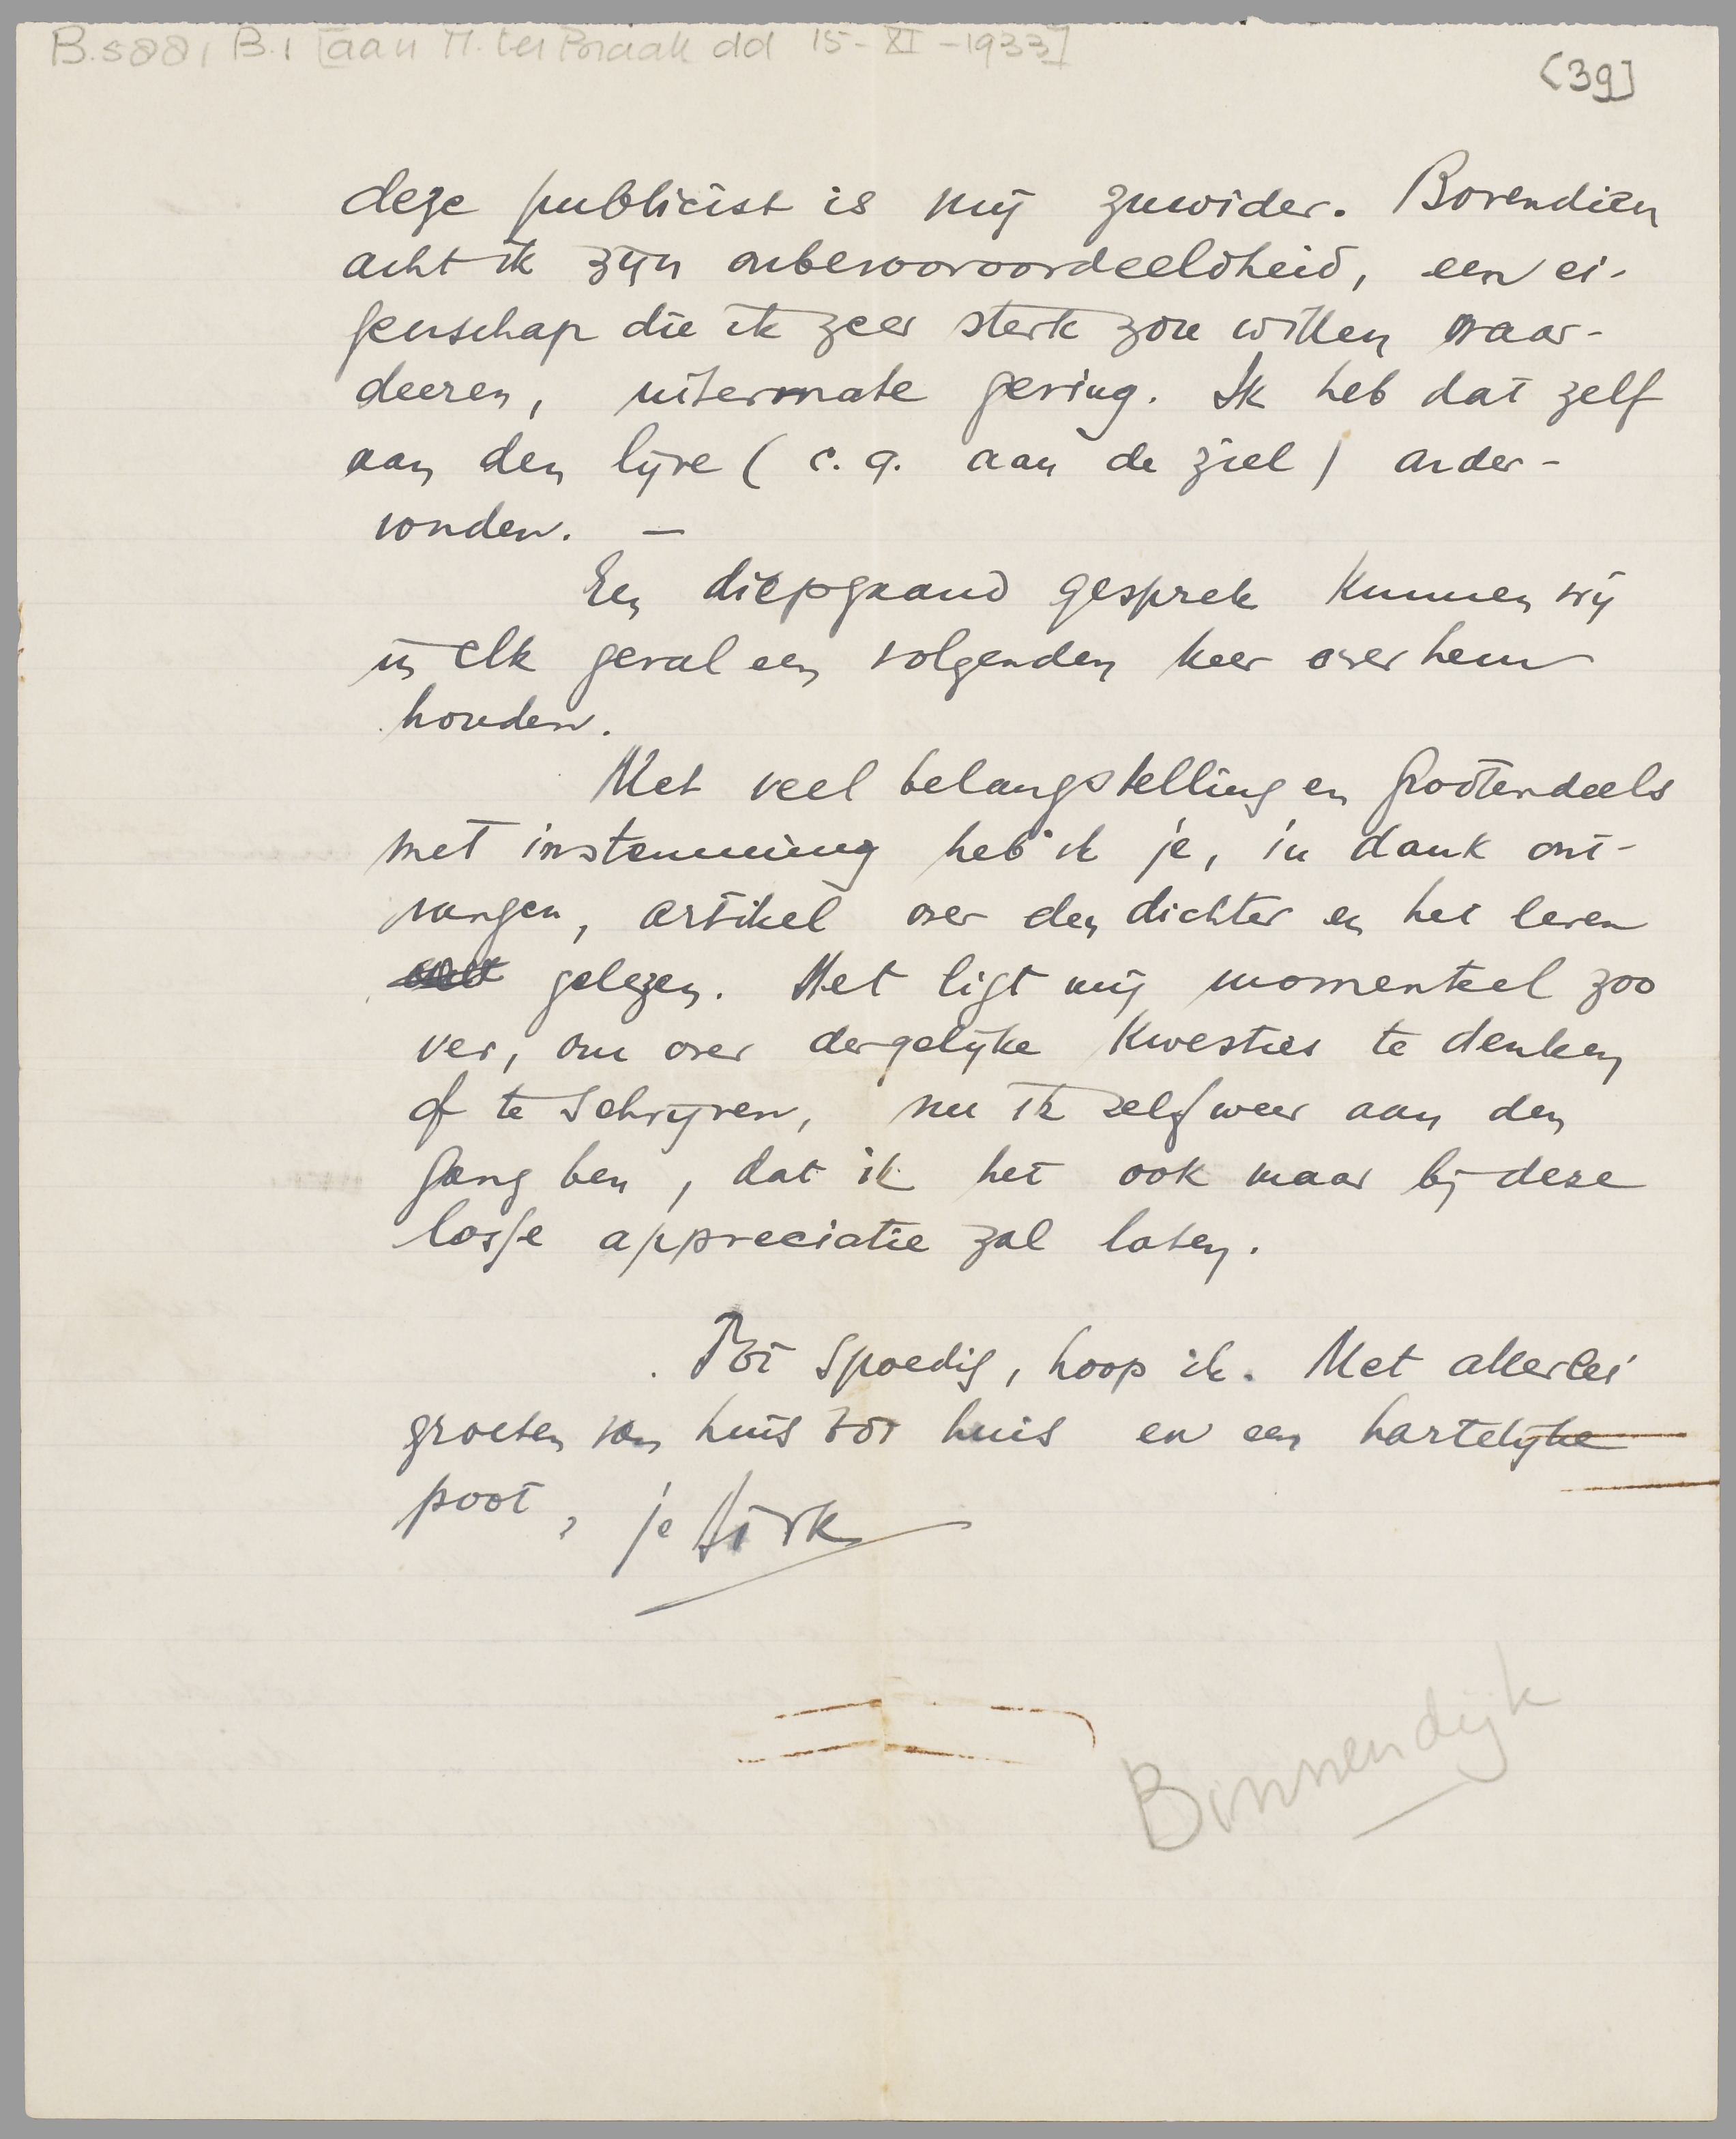 B.5881 B.1 [aan M. ter Braak dd 15-XI-1933]
[39]
deze publicist is mij zuwider. Bovendien
acht ik zijn onbevooroordeeldheid, een ei-
genschap die ik zeer sterk zou willen waar-
deeren, uitermate gering. Ik heb dat zelf
aan den lijve (c.q. aan de ziel) onder-
vonden. —
Een diepgaand gesprek kunnen wij
in elk geval een volgenden keer over hem
houden.
Met veel belangstelling en grootendeels
met instemming heb ik je, in dank ont-
vangen, artikel over den dichter en het leven
gelezen. Het ligt mij momenteel zoo
ver, om over dergelijke kwesties te denken
of te schrijven, nu ik zelf weer aan den
gang ben, dat ik het ook maar bij deze
losse appreciatie zal laten.
Tot spoedig, hoop ik. Met allerlei
groeten van huis tot huis en een hartelijke
poot, je Dirk
Binnendijk